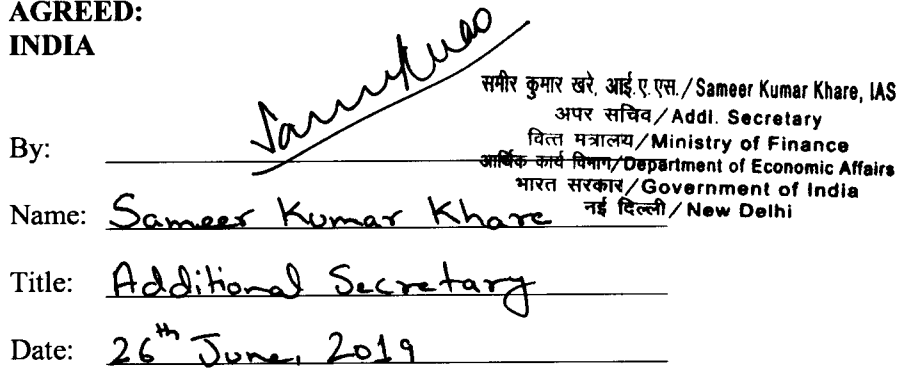 AGREED:
INDIA
समीर कुमार खरे, आई.ए.एस./Sameer Kumar Khare, IAS
अपर सचिव/Addl. Secretary
वित्त मत्रालय/Ministry of Finance
आर्थिक कार्य विभाग/Department of Economic Affairs
भारत सरकार/Government of India
नई दिल्ली/New Delhi
By:
Name: Sameer Kumar Khare
Title: Additional Secretary
Date: 26th June, 2019